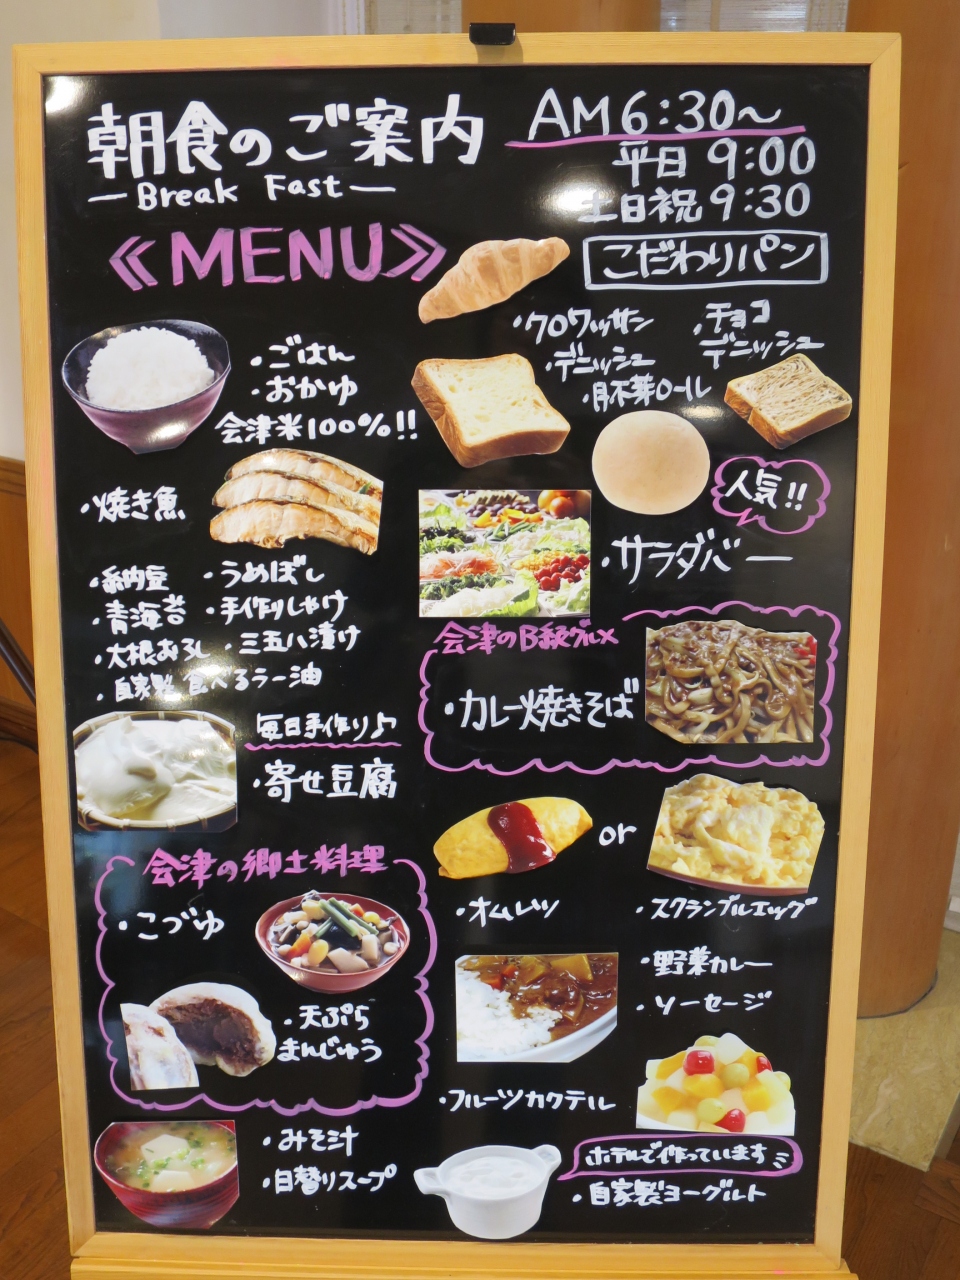 朝食のご案内
AM6:30〜
平日 9:00
土日祝 9:30
— Break Fast —
《MENU》
こだわりパン
・クロワッサン
・チョコデニッシュ
・デニッシュ
・胚芽ロール
人気!!
・ごはん
・おかゆ
会津米100%!!
・焼き魚
・サラダバー
・納豆
・うめぼし
・青海苔
・手作りしゃけ
・大根おろし
・三五八漬け
・自家製 食べるラー油
会津のB級グルメ
・カレー焼きそば
毎日手作り♪
・寄せ豆腐
or
・オムレツ
・スクランブルエッグ
会津の郷土料理
・こづゆ
・天ぷら
まんじゅう
・野菜カレー
・ソーセージ
・フルーツカクテル
・みそ汁
・日替りスープ
ホテルで作っています
・自家製ヨーグルト